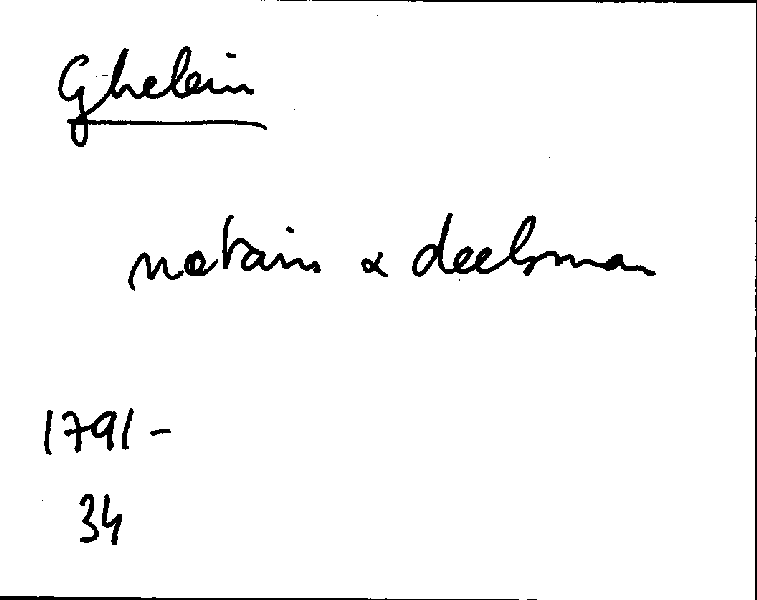 Ghelein
notaris & deelsman
1791-
34